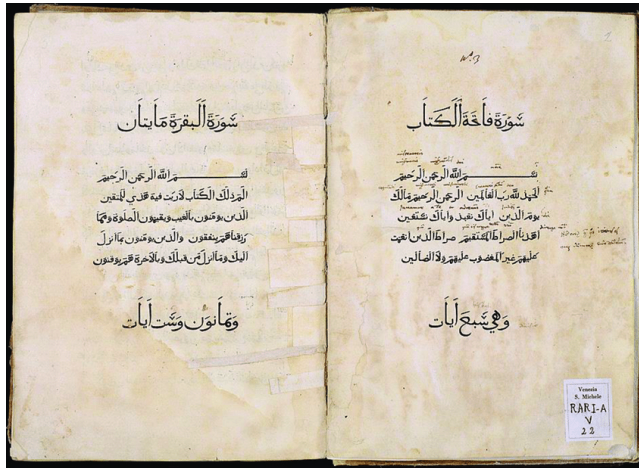 2
سَورَة فَاتحَة اَلكَتَاب
بسم الله الرحمن الرحيم
الحمد لله رب العالمين الرحمن الرحيم مالك
يوم الدين اياك نعبد واياك نستعين
اهدنا الصراط المستقيم صراط الذين انعمت
عليهم غير المغضوب عليهم ولا الضالين
وَهي سَبعَ اَيَات
Venezia
S. Michele
RARI-A
V
22
سَورَة اَلبَقرَة مَايتَان
بسم الله الرحمن الرحيم
الم ذلك الكتاب لا ريب فيه هدي للمتقين
الذين يومنون بالغيب ويقيمون الصلوة ومما
رزقناهم ينفقون والذين يومنون بما انزل
اليك وما انزل من قبلك وبالاخرة هم يوقنون
وَثمَانَون وَسَت اَيَات